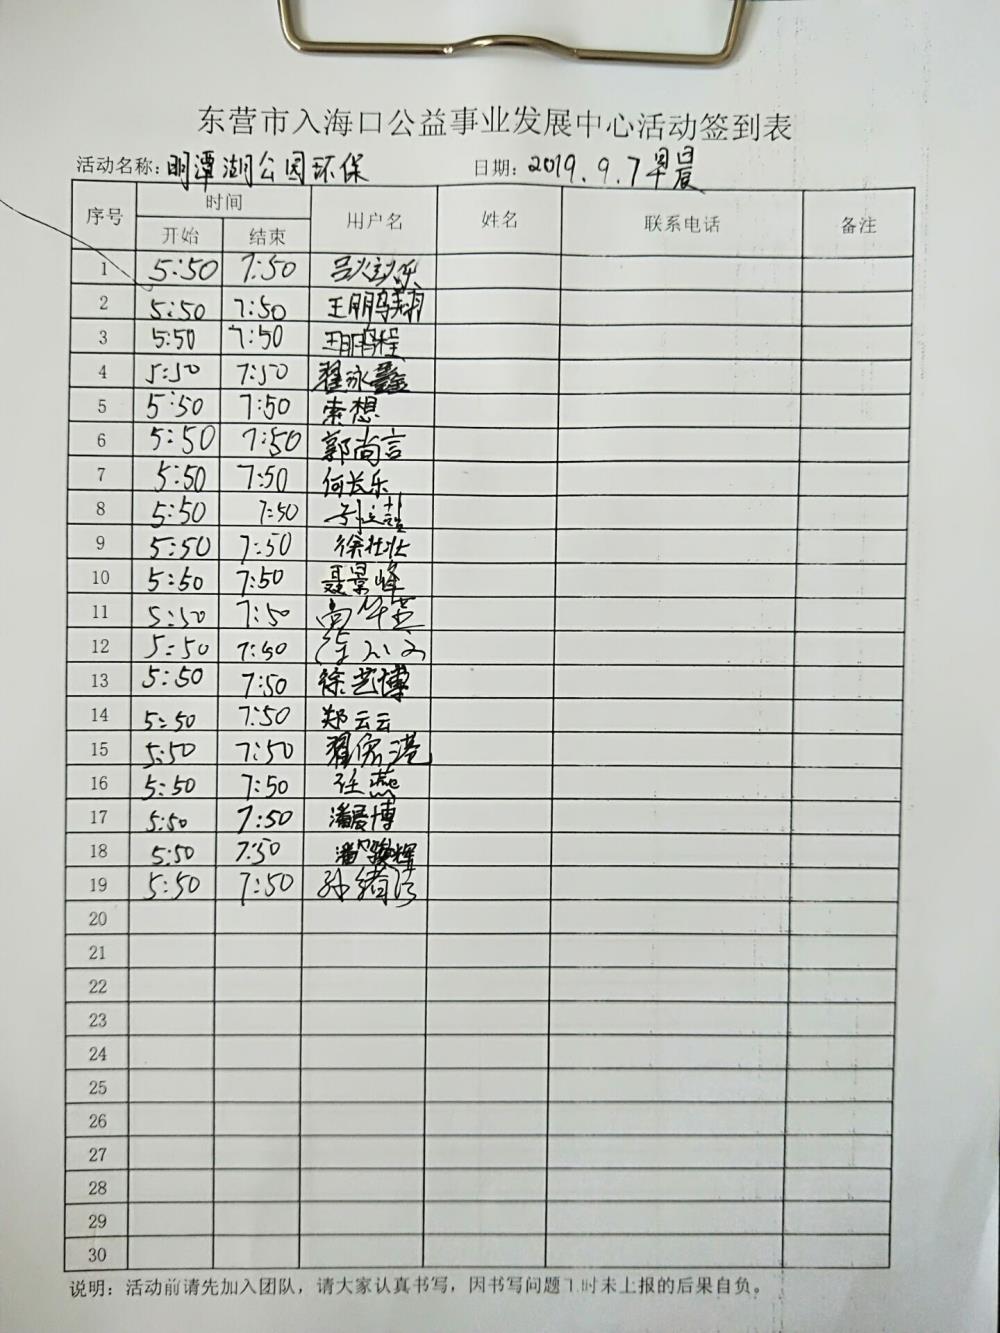 东营市入海口公益事业发展中心活动签到表
活动名称：明潭湖公园环保 日期：2019.9.7早晨
序号 时间 用户名 姓名 联系电话 备注
开始 结束
1 5:50 7:50
2 5:50 7:50 王鹏翔
3 5:50 7:50 王鹏程
4 5:50 7:50 翟咏鑫
5 5:50 7:50 索想
6 5:50 7:50 郭尚言
7 5:50 7:50 何长乐
8 5:50 7:50
9 5:50 7:50 徐壮壮
10 5:50 7:50 聂景峰
11 5:50 7:50 高华英
12 5:50 7:50
13 5:50 7:50 徐艺博
14 5:50 7:50 郑云云
15 5:50 7:50
16 5:50 7:50 任燕
17 5:50 7:50
18 5:50 7:50
19 5:50 7:50
20
21
22
23
24
25
26
27
28
29
30
说明：活动前请先加入团队，请大家认真书写，因书写问题 时未上报的后果自负。